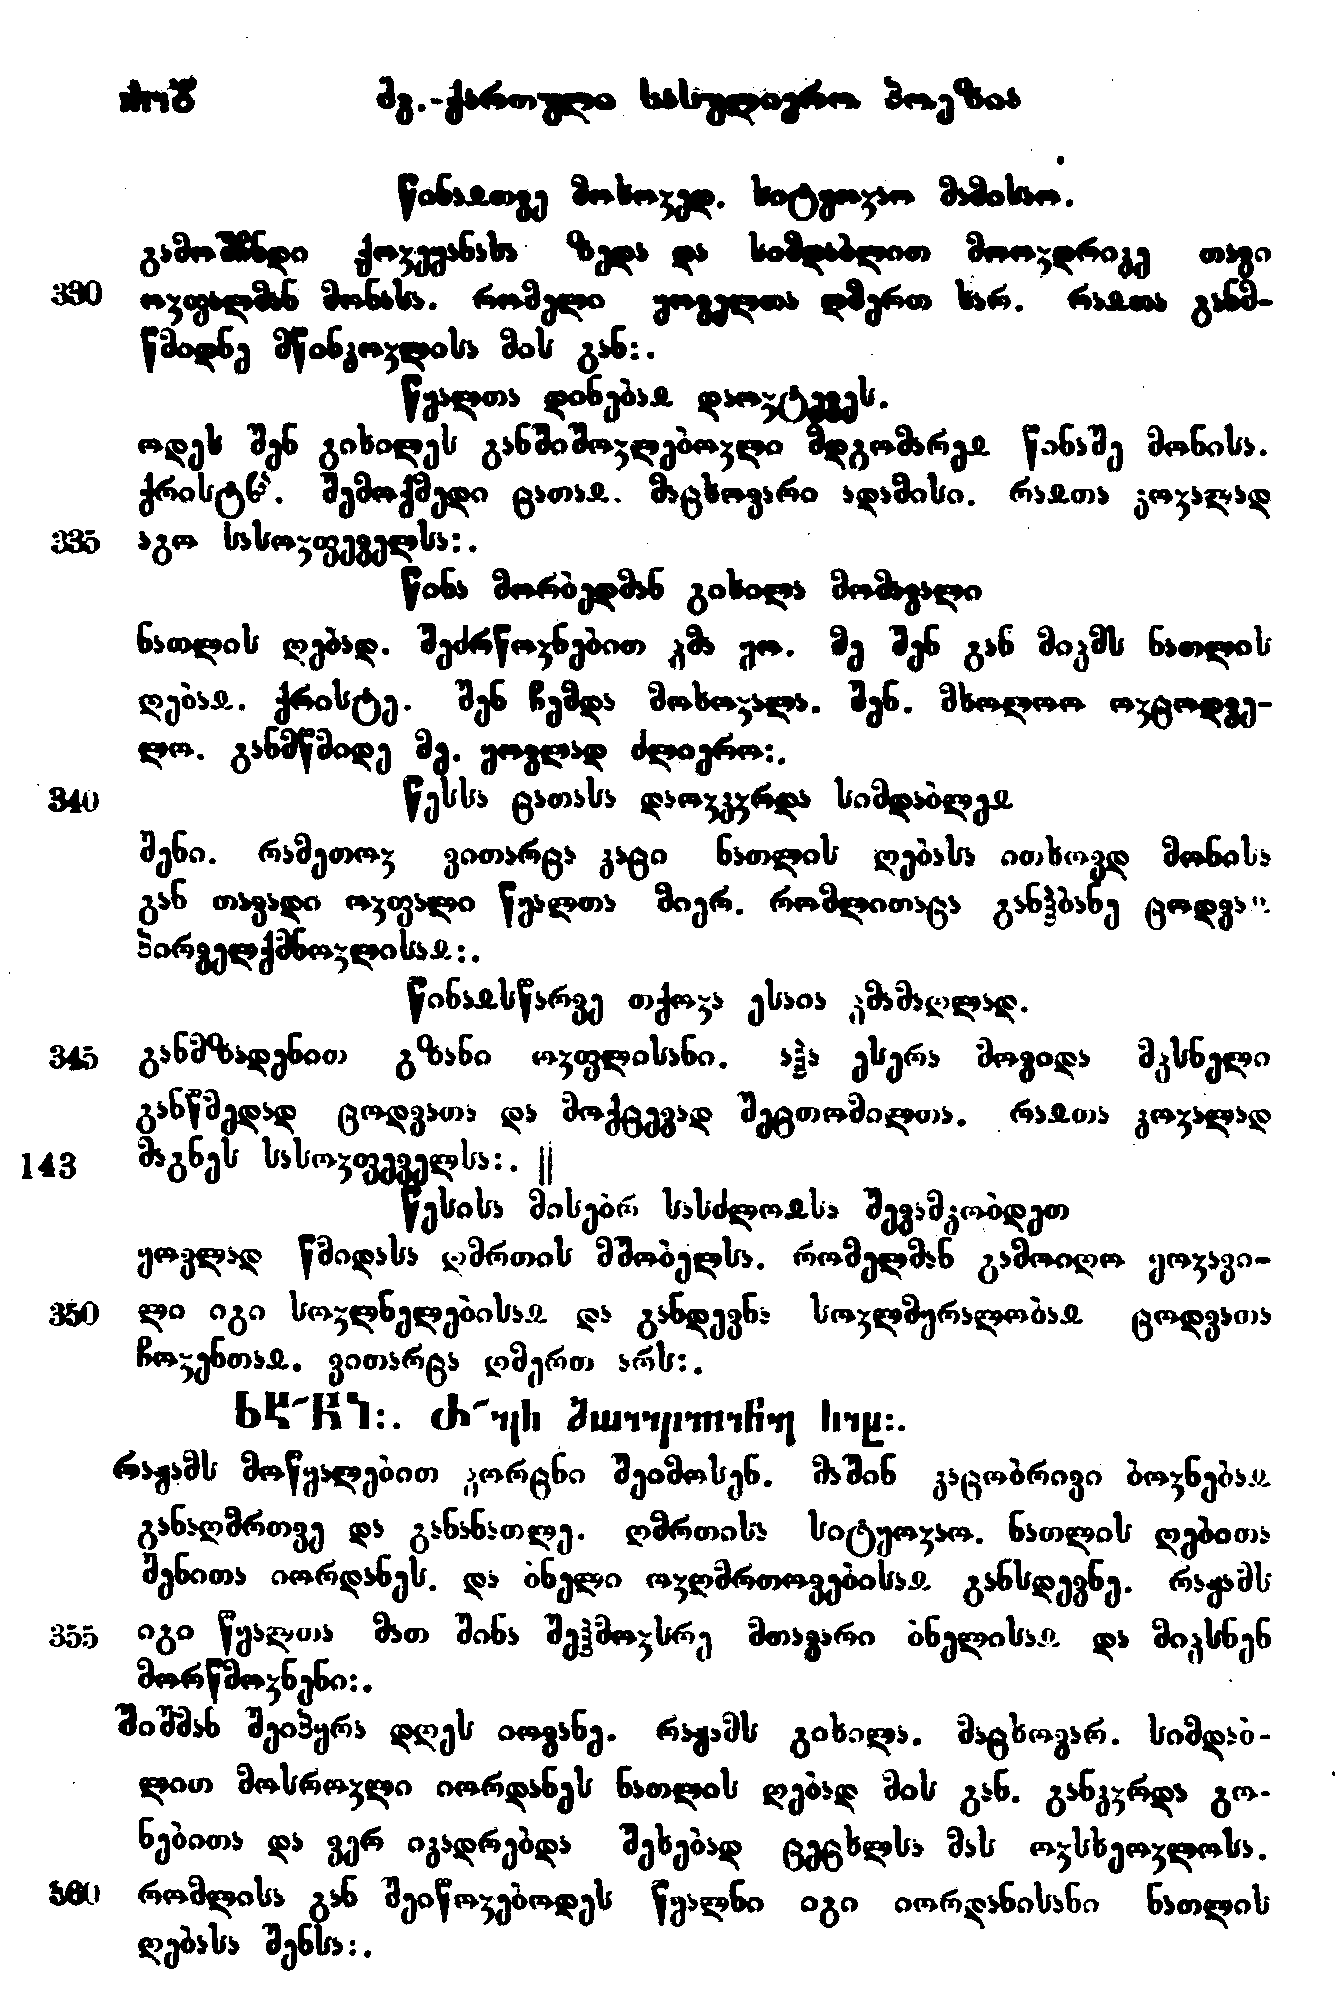 შგ.-ქართული სასულიერო პოეზია
წინაჲთვე მოხოჳედ. სიტყოჳაო მამისაო.
გამოშჩნდი ქოჳეყანასა ზედა და სიმდაბლით მოოჳდრიკე თავი
330 ოჳფალმან მონასა. რომელი ყოველთა ღმერთ ხარ. რაჲთა განმ-
წმიდნე მწინკოჳლისა მის გან:.
წყალთა დინებაჲ დაოჳტევეს.
ოდეს შენ გიხილეს განშიშოჳლებოჳლი მდგომარეჲ წინაშე მონისა.
ქრისტჱ. შემოქმედი ცათაჲ. მაცხოვარი ადამისი. რაჲთა კოჳალად
335 აგო სასოჳფეველსა:.
წინა მორბედმან გიხილა მომავალი
ნათლის ღებად. შეძრწოჳნებით ჴმა ყო. მე შენ გან მიჴმს ნათლის
ღებაჲ. ქრისტე. შენ ჩემდა მოხოჳალა. შენ. მხოლოო ოჳცოდვე-
ლო. განმწმიდე მე. ყოვლად ძლიერო:.
340 წესსა ცათასა დაოჳკჳრდა სიმდაბლეჲ
შენი. რამეთოჳ ვითარცა კაცი ნათლის ღებასა ითხოვდ მონისა
გან თავადი ოჳფალი წყალთა მიერ. რომლითაცა განჰბანე ცოდვაჲ
პირველქმნოჳლისაჲ:.
წინაჲსწარვე თქოჳა ესაია ჴმამაღლად.
345 განმზადენით გზანი ოჳფლისანი. აჰა ესერა მოვიდა მჴსნელი
განწმედად ცოდვათა და მოქცევად შეცთომილთა. რაჲთა კოჳალად
143 მაგნეს სასოჳფეველსა:. ||
წესისა მისებრ სასძლოჲსა შევამკობდეთ
ყოვლად წმიდასა ღმრთის მშობელსა. რომელმან გამოიღო ყოჳავი-
350 ლი იგი სოჳლნელებისაჲ და განდევნა სოჳლმყრალობაჲ ცოდვათა
ჩოჳენთაჲ. ვითარცა ღმერთ არს:.
რაჟამს მოწყალებით ჴორცნი შეიმოსენ. მაშინ კაცობრივი ბოჳნებაჲ
განაღმრთვე და განანათლე. ღმრთისა სიტყოჳაო. ნათლის ღებითა
შენითა იორდანეს. და ბნელი ოჳღმრთოვებისაჲ განსდევნე. რაჟამს
355 იგი წყალთა მათ შინა შეჰმოჳსრე მთავარი ბნელისაჲ და მიჴსნენ
მორწმოჳნენი:.
შიშმან შეიპყრა დღეს იოვანე. რაჟამს გიხილა. მაცხოვარ. სიმდაბ-
ლით მოსროჳლი იორდანეს ნათლის ღებად მის გან. განკჳრდა გო-
ნებითა და ვერ იკადრებდა შეხებად ცეცხლსა მას ოჳსხეოჳლოსა.
360 რომლისა გან შეიწოჳებოდეს წყალნი იგი იორდანისანი ნათლის
ღებასა შენსა:.